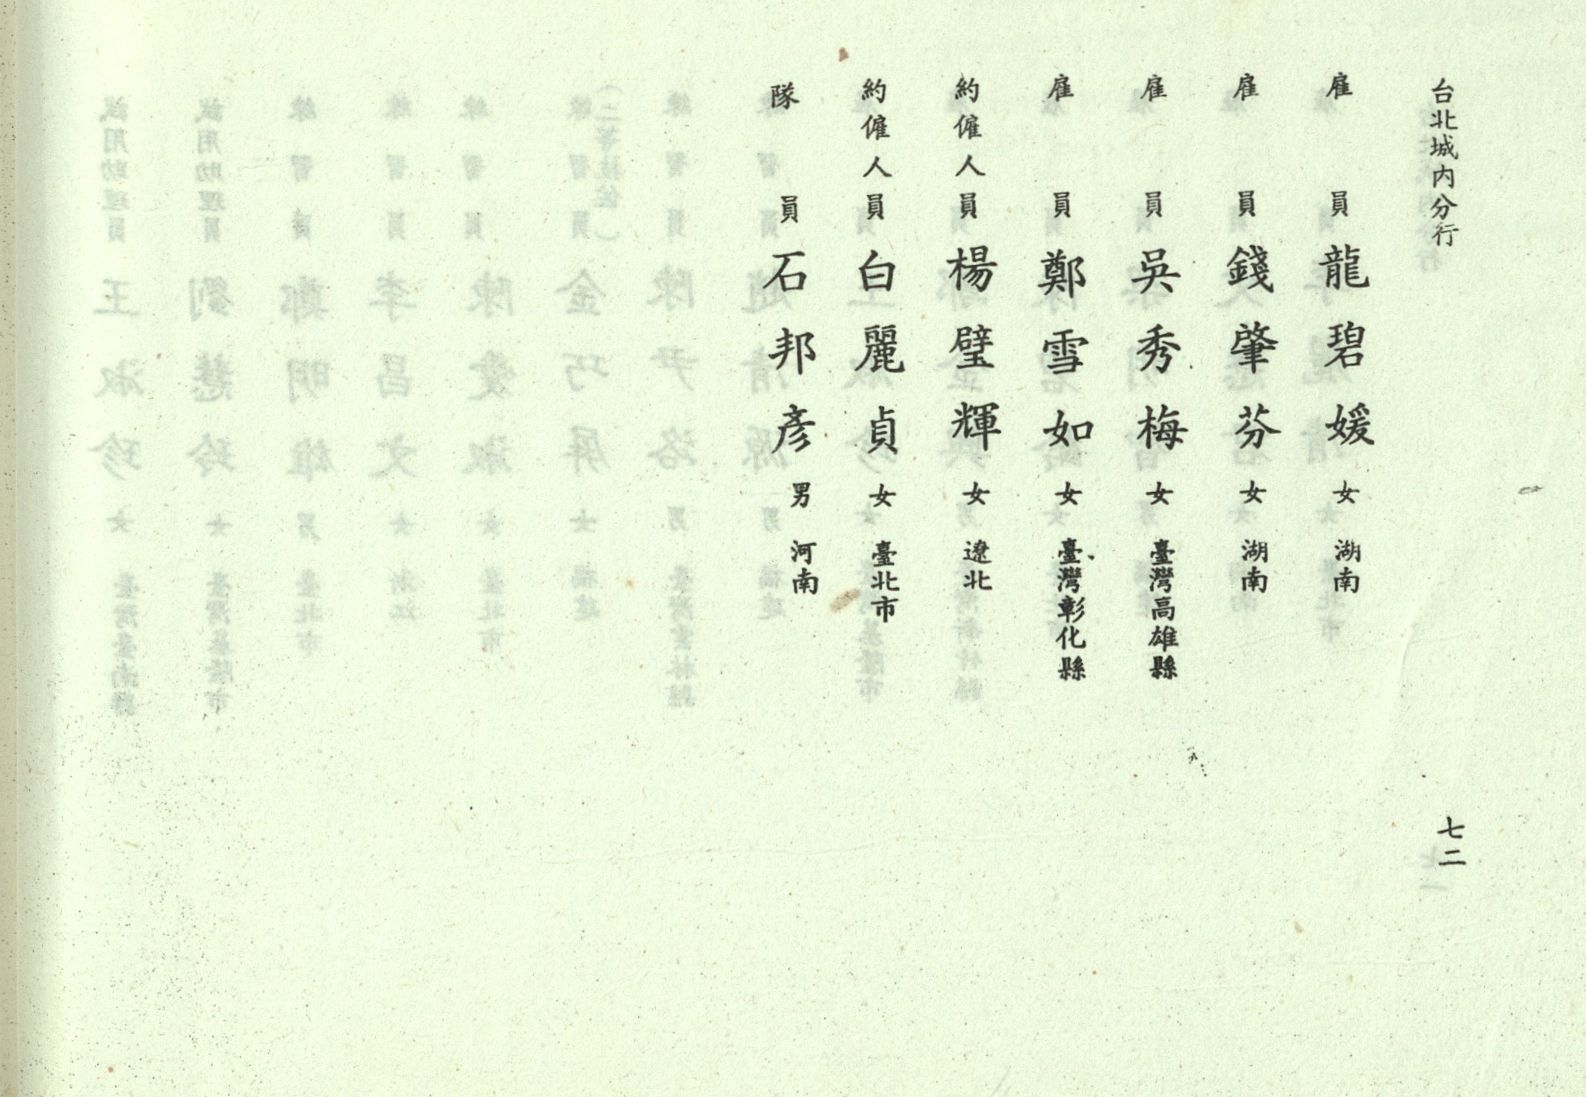 台北城內分行
雇員龍碧媛女湖南
雇員錢肇芬女湖南
雇員吳秀梅女臺灣高雄縣
雇員鄭雪如女臺灣彰化縣
約僱人員楊璧輝女遼北
約僱人員白麗貞女臺北市
隊員石邦彥男河南
七二